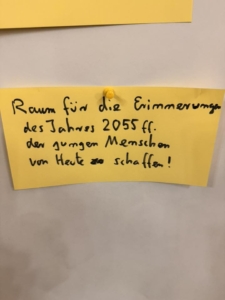 Raum für die Erinnerungen
des Jahres 2055 ff.
der jungen Menschen
von Heute schaffen!